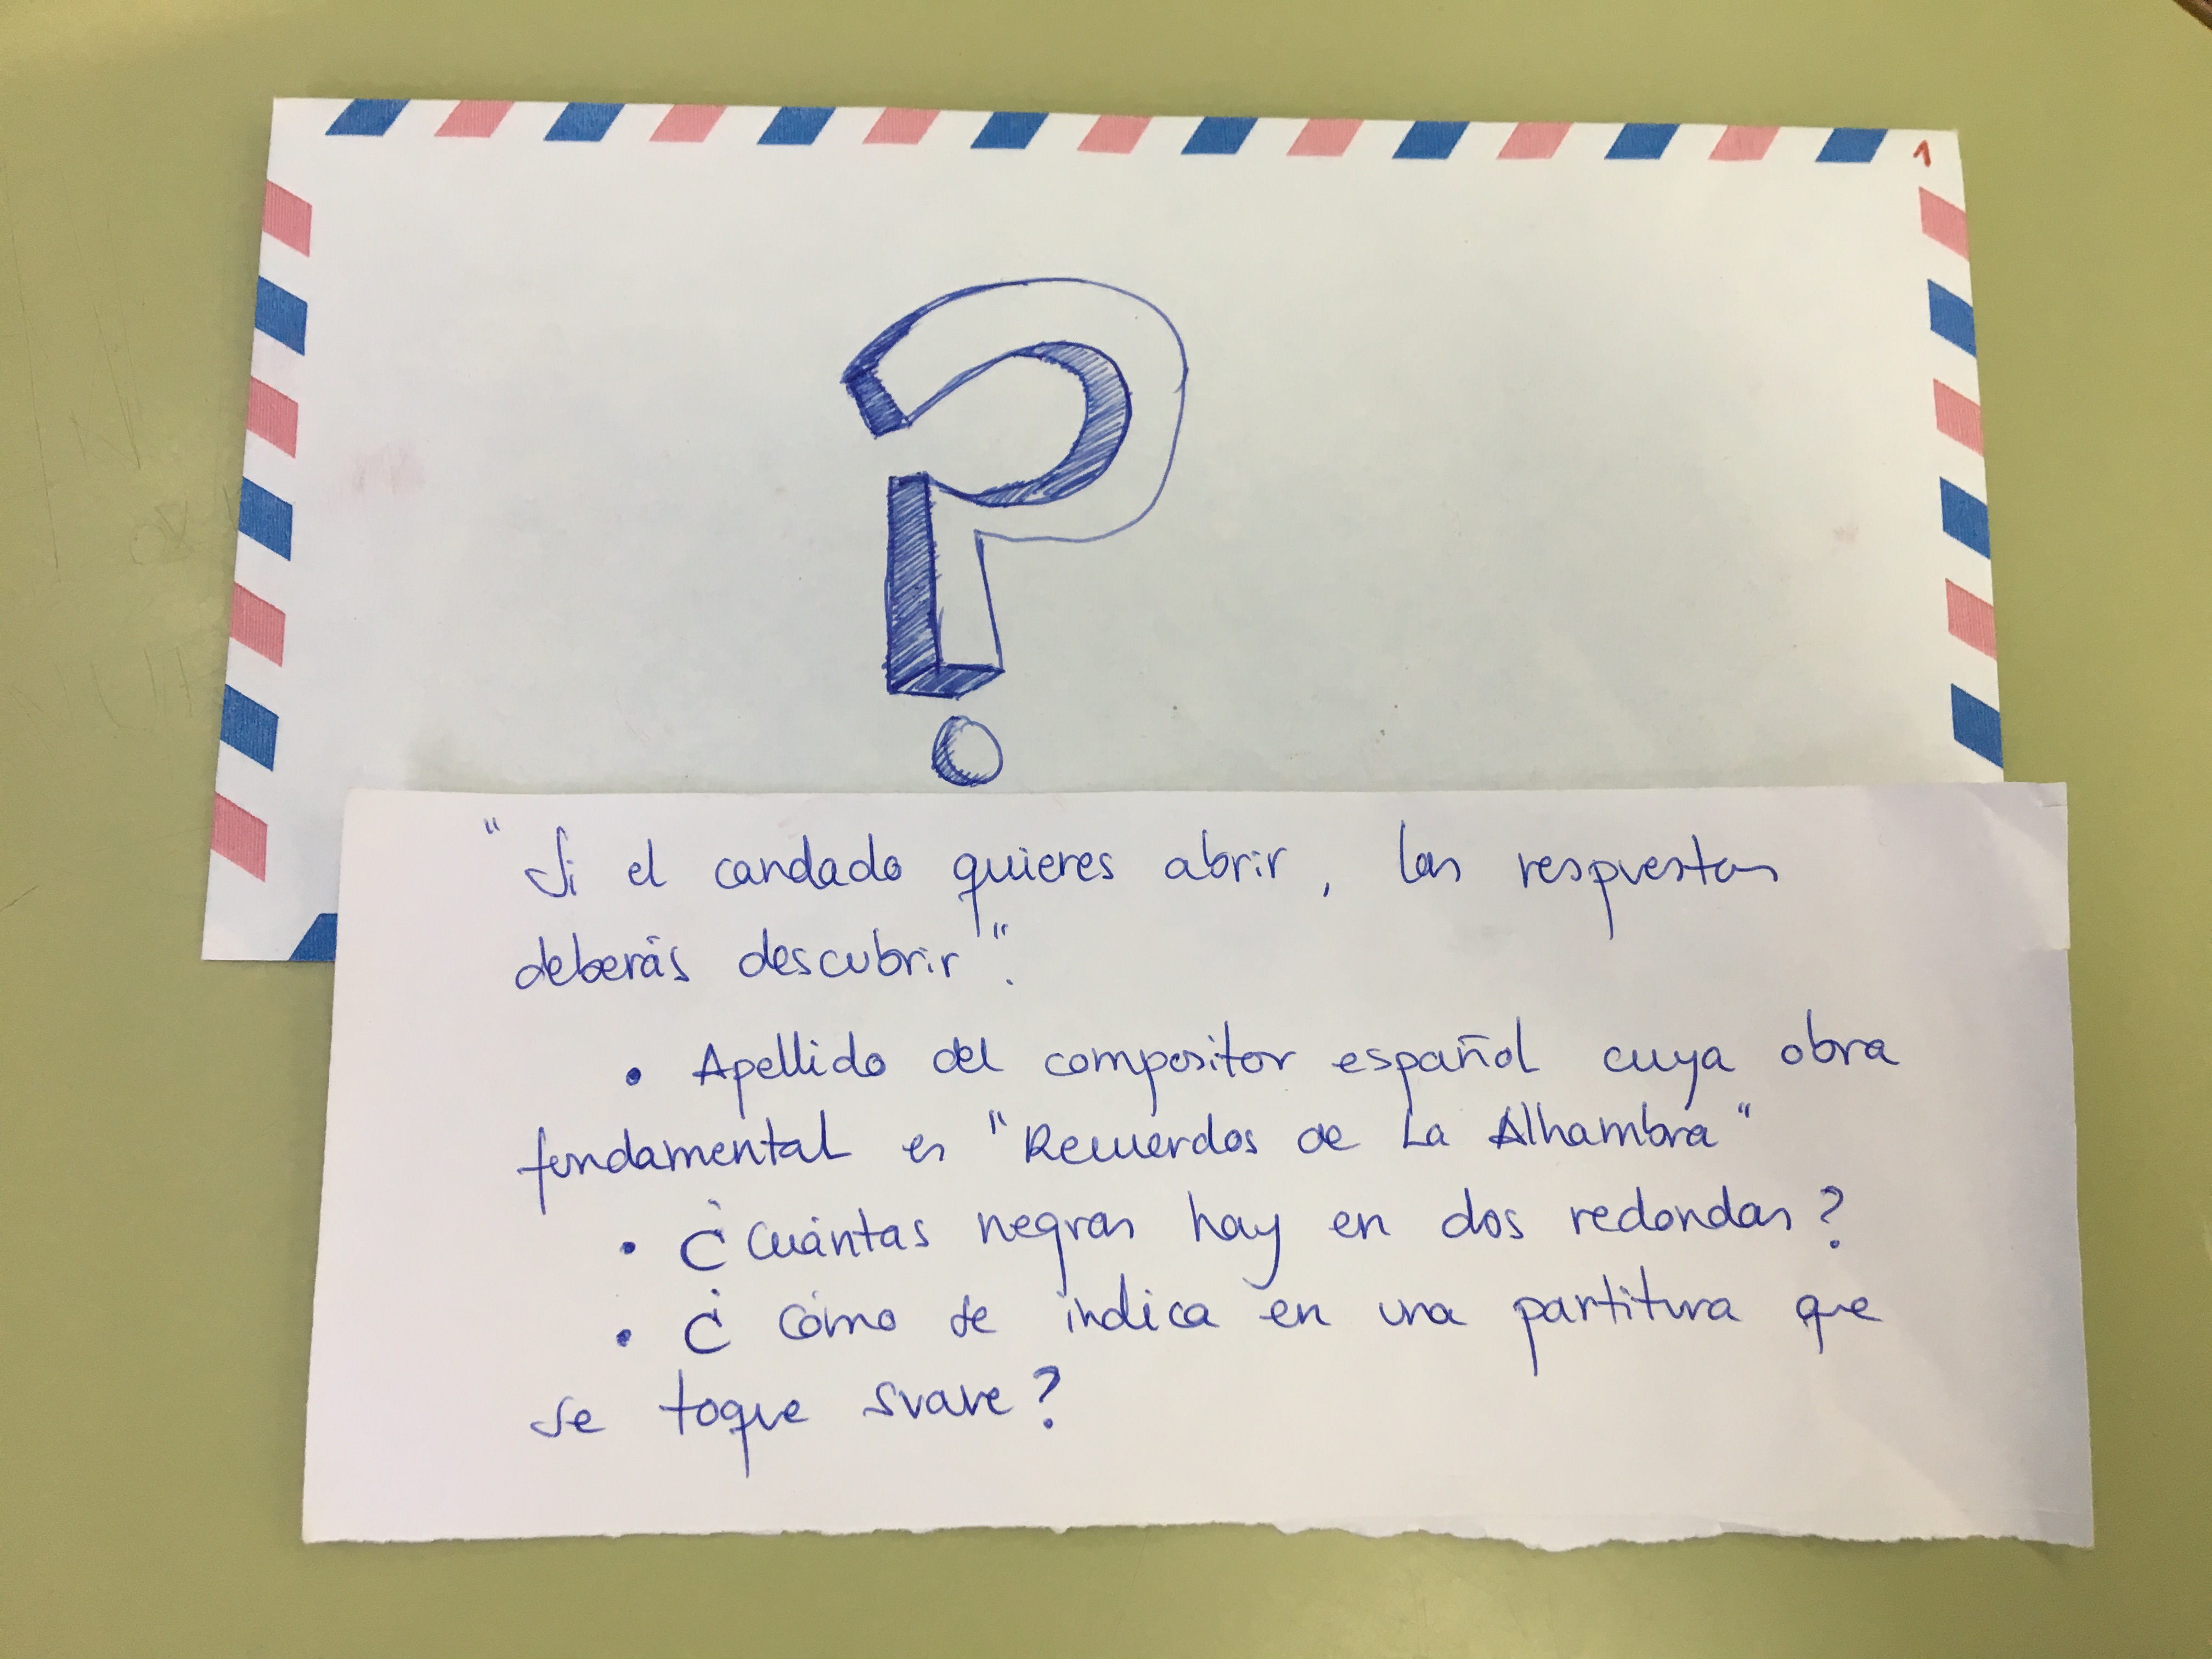 1
?
"Si el candado quieres abrir, las respuestas
deberás descubrir".
• Apellido del compositor español cuya obra
fundamental es "Recuerdos de La Alhambra"
• ¿Cuántas negras hay en dos redondas?
• ¿Cómo se indica en una partitura que
se toque suave?